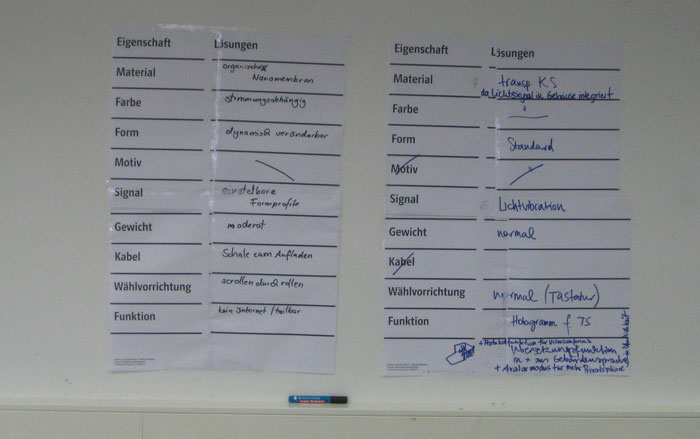 Eigenschaft Lösungen
Material organische
Nanomembran
Farbe stimmungsabhängig
Form dynamisch veränderbar
Motiv
Signal einstellbare
Formprofile
Gewicht moderat
Kabel Schale zum Aufladen
Wählvorrichtung scrollen durch rollen
Funktion kein Internet / teilbar
Eigenschaft Lösungen
Material transp. KS
da Lichtsignal in Gehäuse integriert
Farbe
Form Standard
Motiv
Signal Lichtvibration
Gewicht normal
Kabel
Wählvorrichtung normal (Tastatur)
Funktion Hologramm f TS
Übersetzungsfunktion
in + aus Gebärdensprache
+ Avatarmodus für mehr Privatsphäre